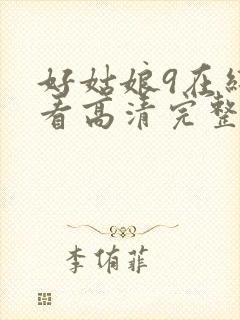 好姑娘9在线
看高清完整
李侑菲